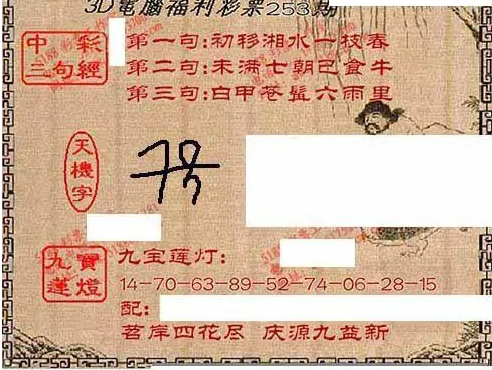 3D電腦福利彩票253期
中彩
三句經
第一句:初移湘水一枝春
第二句:未满七朝已食牛
第三句:白甲苍髯六雨里
天機字
九寶
蓮燈
九宝莲灯:
14-70-63-89-52-74-06-28-15
配:
苕岸四花尽 庆源九益新